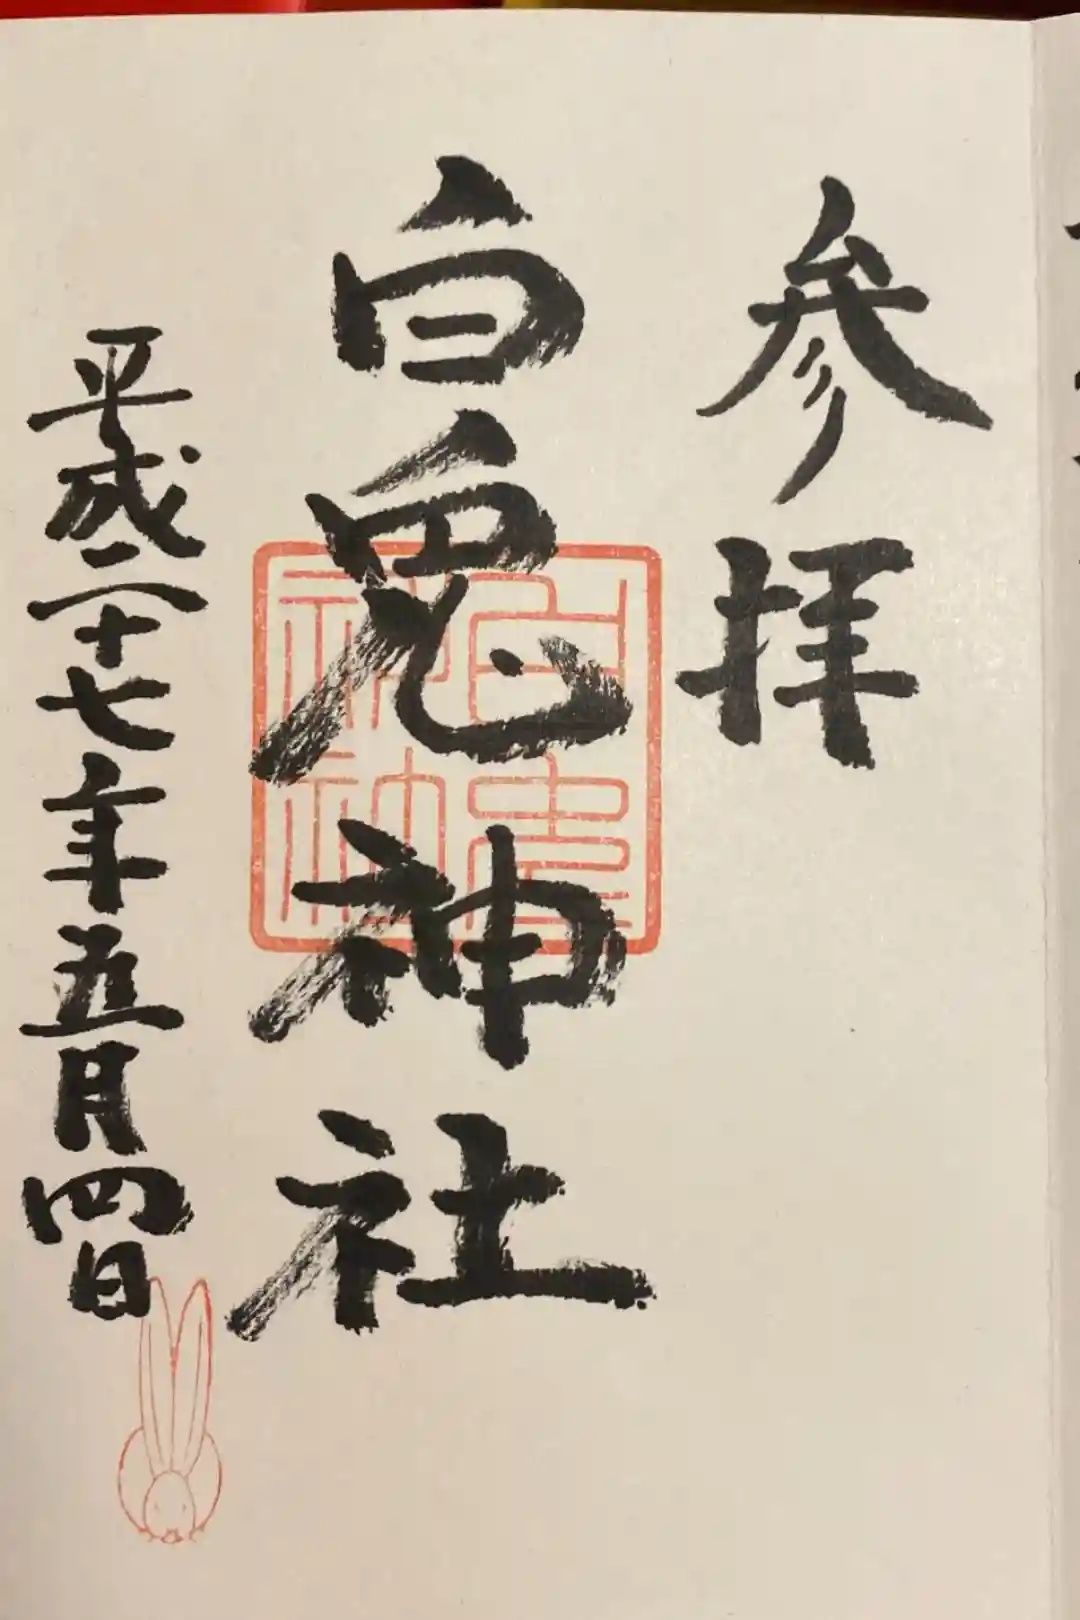 参拝
白兎神社
平成二十七年五月四日
白兎神社